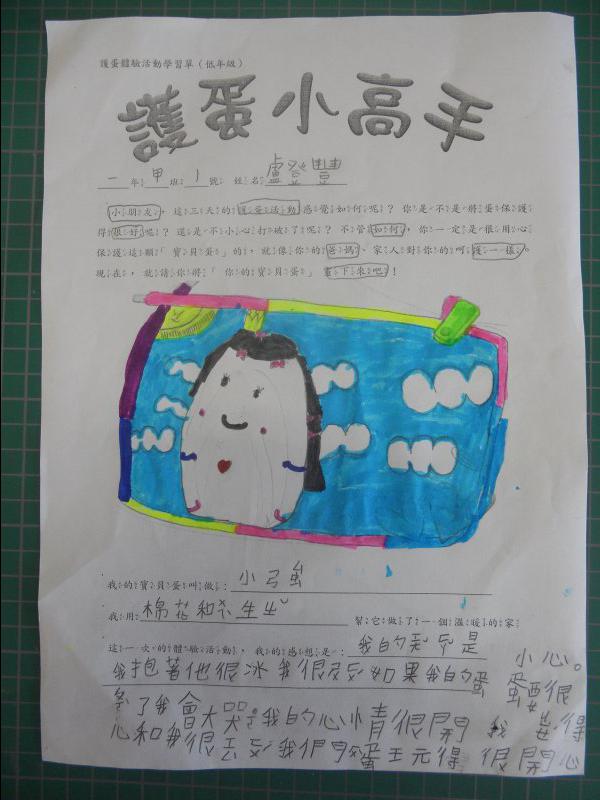 護蛋體驗活動學習單（低年級）
護蛋小高手
一年甲班1號 姓名盧登豐
小朋友，這三天的護蛋活動感覺如何呢？你是不是將蛋保護
得很好呢？還是不小心打破了呢？不管如何，你一定是很用心
保護這顆「寶貝蛋」的，就像你的爸媽、家人對你的呵護一樣。
現在，就請你將「你的寶貝蛋」畫下來吧！
我的寶貝蛋叫做：小
我用 棉花和 幫它做了一個溫暖的家
這一次的體驗活動，我的感想是：我的 是
我抱著他很冰我很 如果我的蛋
了我會大哭 我的心情很開
心和我很 我們 蛋王元得
小心。
蛋要很
我 得
很開心